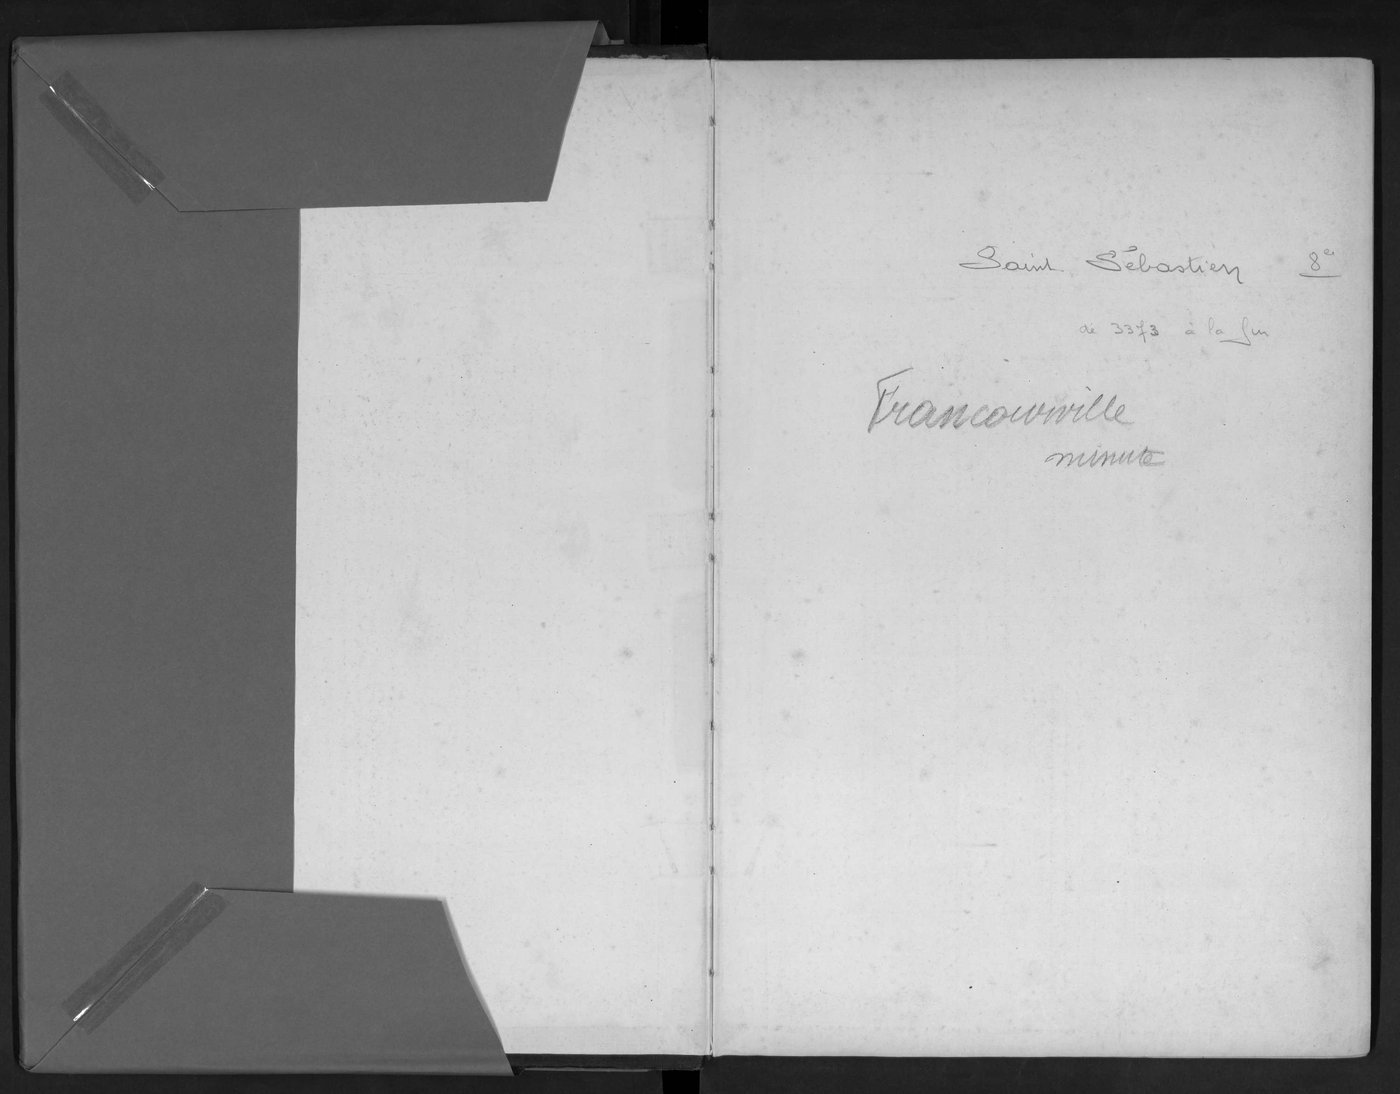 Saint Sébastien 8e
de 3373 à la fin
Francourville
minute